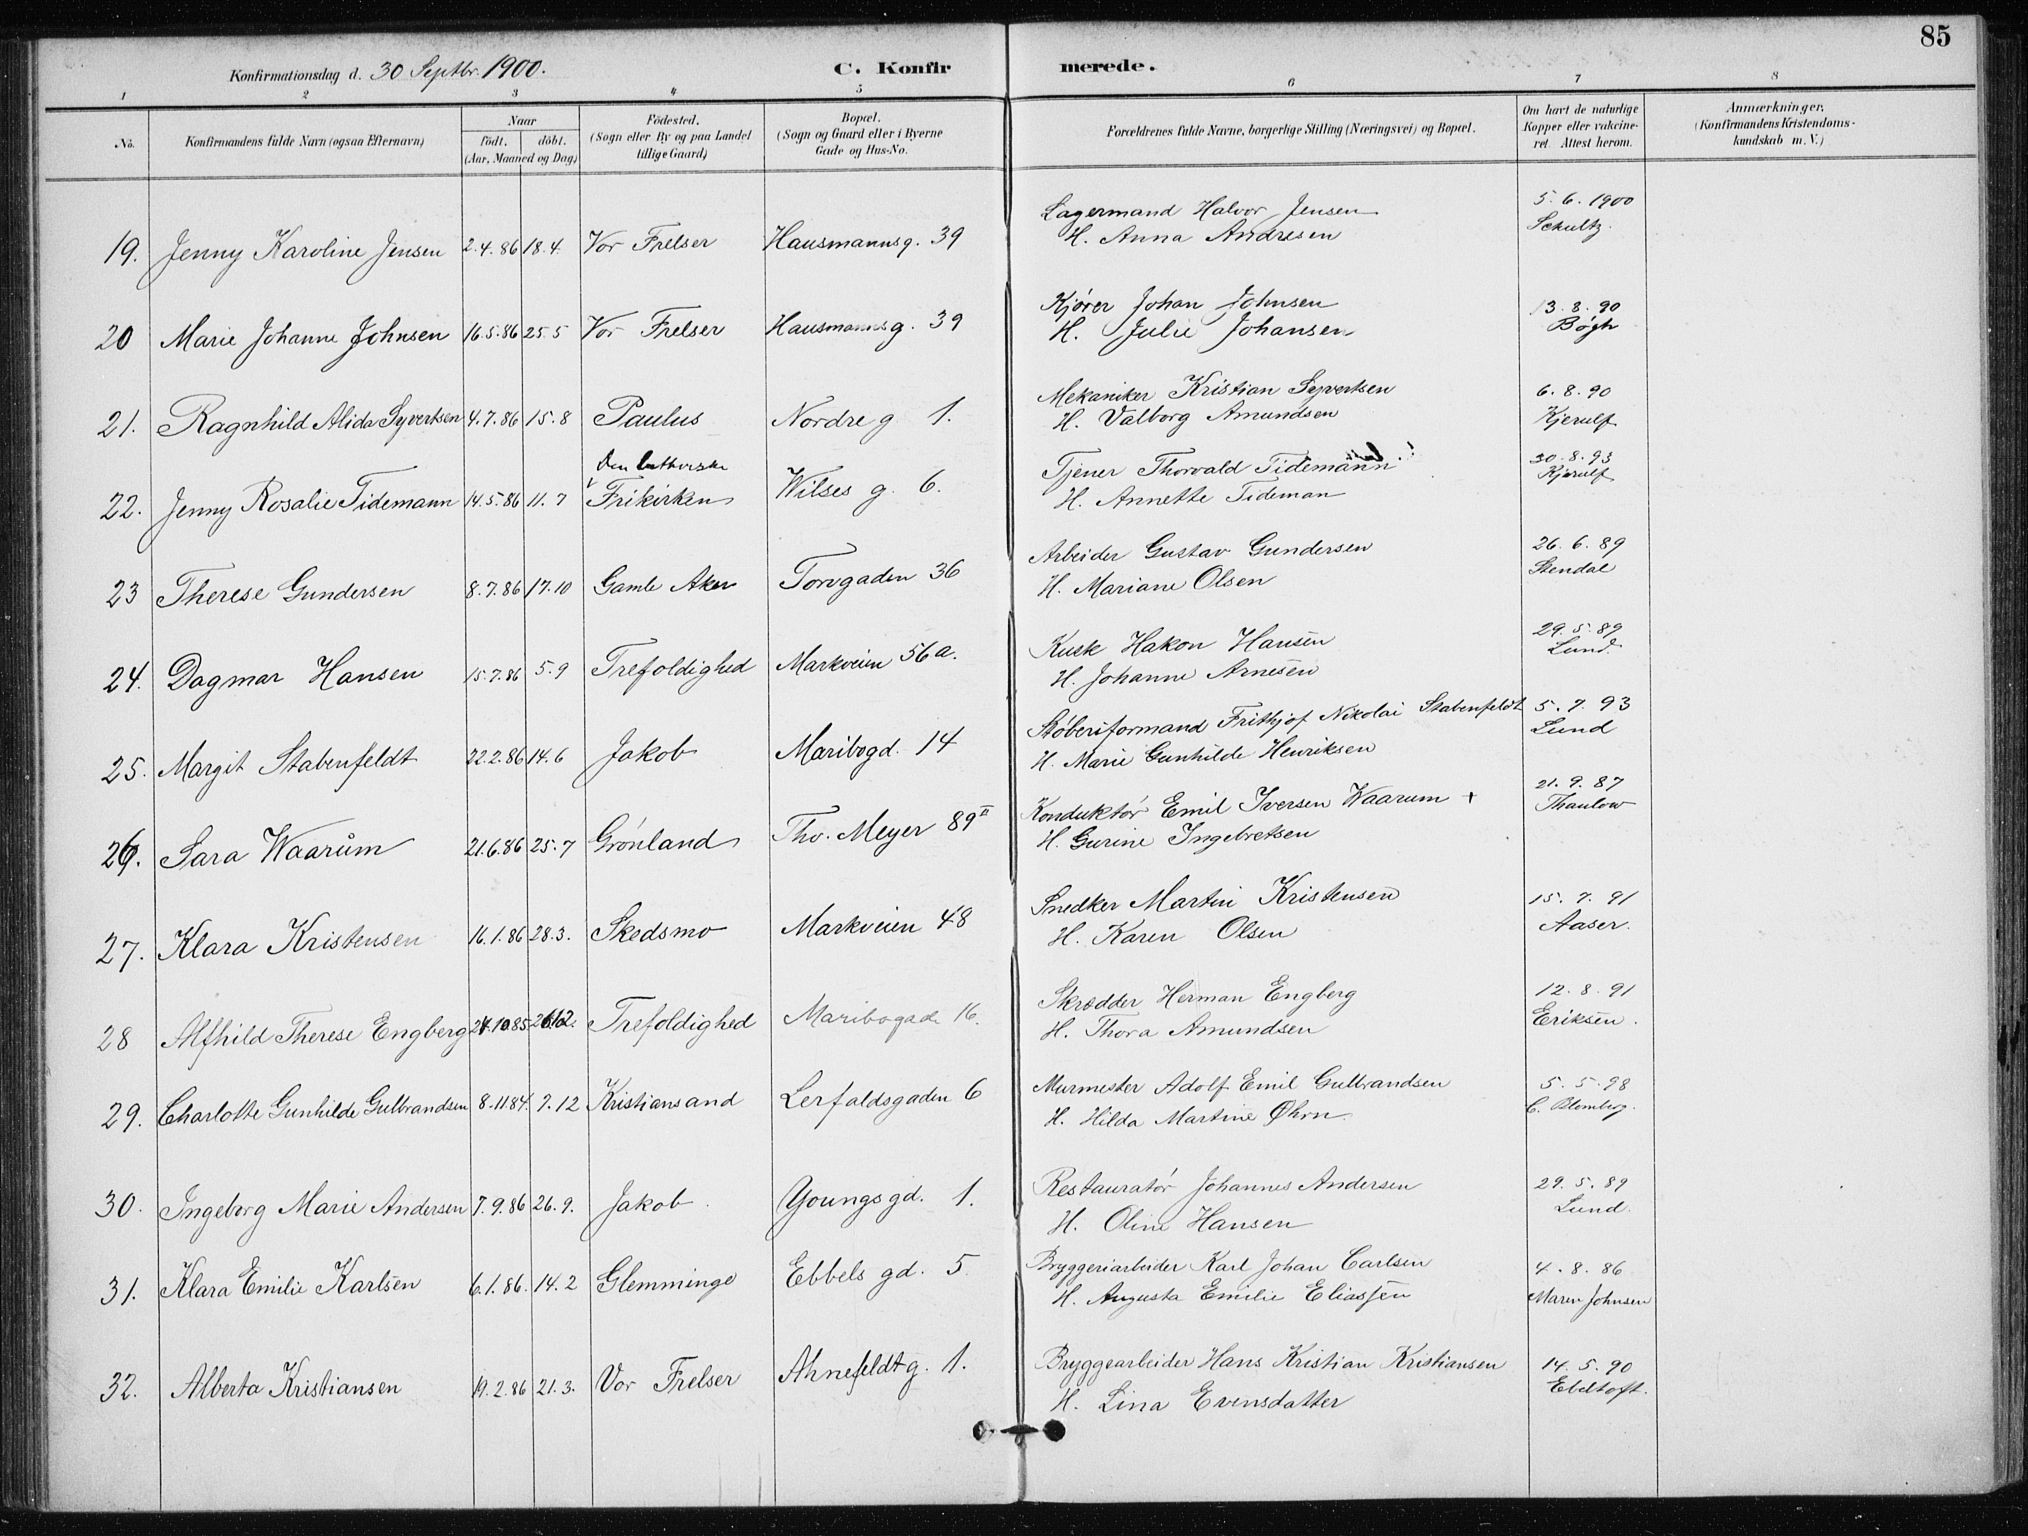 85
Konfirmationsdag d. 30 Septbr. 1900.
C. Konfirmerede.
1 2 3 4 5 6 7 8
No.
Konfirmandens fulde Navn (ogsaa Efternavn)
Naar
födt. döbt.
(Aar, Maaned og Dag)
Födested.
(Sogn eller By og paa Landet
tillige Gaard)
Bopæl.
(Sogn og Gaard eller i Byerne
Gade og Hus-No.
Forældrenes fulde Navne, borgerlige Stilling (Næringsvei) og Bopæl.
Om havt de naturlige
Kopper eller vakcine-
ret. Attest herom.
Anmærkninger.
(Konfirmandens Kristendoms-
kundskab m. V.)
19. Jenny Karoline Jensen 2.4.86 18.4. Vor Frelser Hausmannsg. 39
Lagermand Halvor Jensen
H. Anna Andresen
5.6.1900
Schultz.
20 Marie Johanne Johnsen 16.5.86 25.5 Vor Frelser Hausmannsg. 39
Kjører Johan Johnsen
H. Julie Johansen
13.8.90
Bøgh
21. Ragnhild Alida Syvertsen 4.7.86 15.8 Paulus Nordre g. 1.
Mekaniker Kristian Syvertsen
H. Valborg Amundsen
6.8.90
Kjerulf
22. Jenny Rosalie Tidemann 14.5.86 11.7 Den lutherske
Frikirken Wilses g. 6.
Tjener Thorvald Tidemann
H. Annette Tideman
30.8.93
Kjerulf
23 Therese Gundersen 8.7.86 17.10 Gamle Aker Torvgaden 36
Arbeider Gustav Gundersen
H. Mariane Olsen
26.6.89
Stendal
24. Dagmar Hansen 15.7.86 5.9 Trefoldighed Markveien 56a.
Kusk Hakon Hansen
H. Johanne Arnesen
29.5.89
Lund.
25. Margit Stabenfeldt 22.2.86 14.6 Jakob Maribogd. 14
Støberiformand Frithjof Nikolai Stabenfeldt
H. Marie Gunhilde Henriksen
5.7.93
Lund
26. Sara Waarum 21.6.86 25.7 Grønland Thv. Meyer 89 II
Konduktør Emil Iversen Waarum +
H. Gurine Ingebretsen
21.9.87
Thaulow
27. Klara Kristensen 16.1.86 28.3. Skedsmo Markveien 48
Snedker Martin Kristensen
H. Karen Olsen
15.7.91
Aaser.
28 Alfhild Therese Engberg 24.10.85 26.12. Trefoldighed Maribogade 16.
Skrædder Herman Engberg
H. Thora Amundsen
12.8.91
Eriksen.
29. Charlotte Gunhilde Gulbrandsen 8.11.84. 7.12 Kristiansand Lerfaldsgaden 6
Murmester Adolf Emil Gulbrandsen
H. Hilda Martine Øhrn
5.5.98
C. Blomberg.
30. Ingeborg Marie Andersen 7.9.86 26.9. Jakob Youngsgd. 1.
Restauratør Johannes Andersen
H. Oline Hansen
29.5.89
Lund.
31. Klara Emilie Karlsen 6.1.86. 14.2 Glemminge Ebbels gd. 5
Bryggeriarbeider Karl Johan Carlsen
H. Augusta Emilie Eliassen
4.8.86
Maren Johnsen
32. Alberta Kristiansen 19.2.86 21.3. Vor Frelser Ahnefeldtg. 1.
Bryggearbeider Hans Kristian Kristiansen
H. Lina Evensdatter
14.5.90
Ebeltoft.